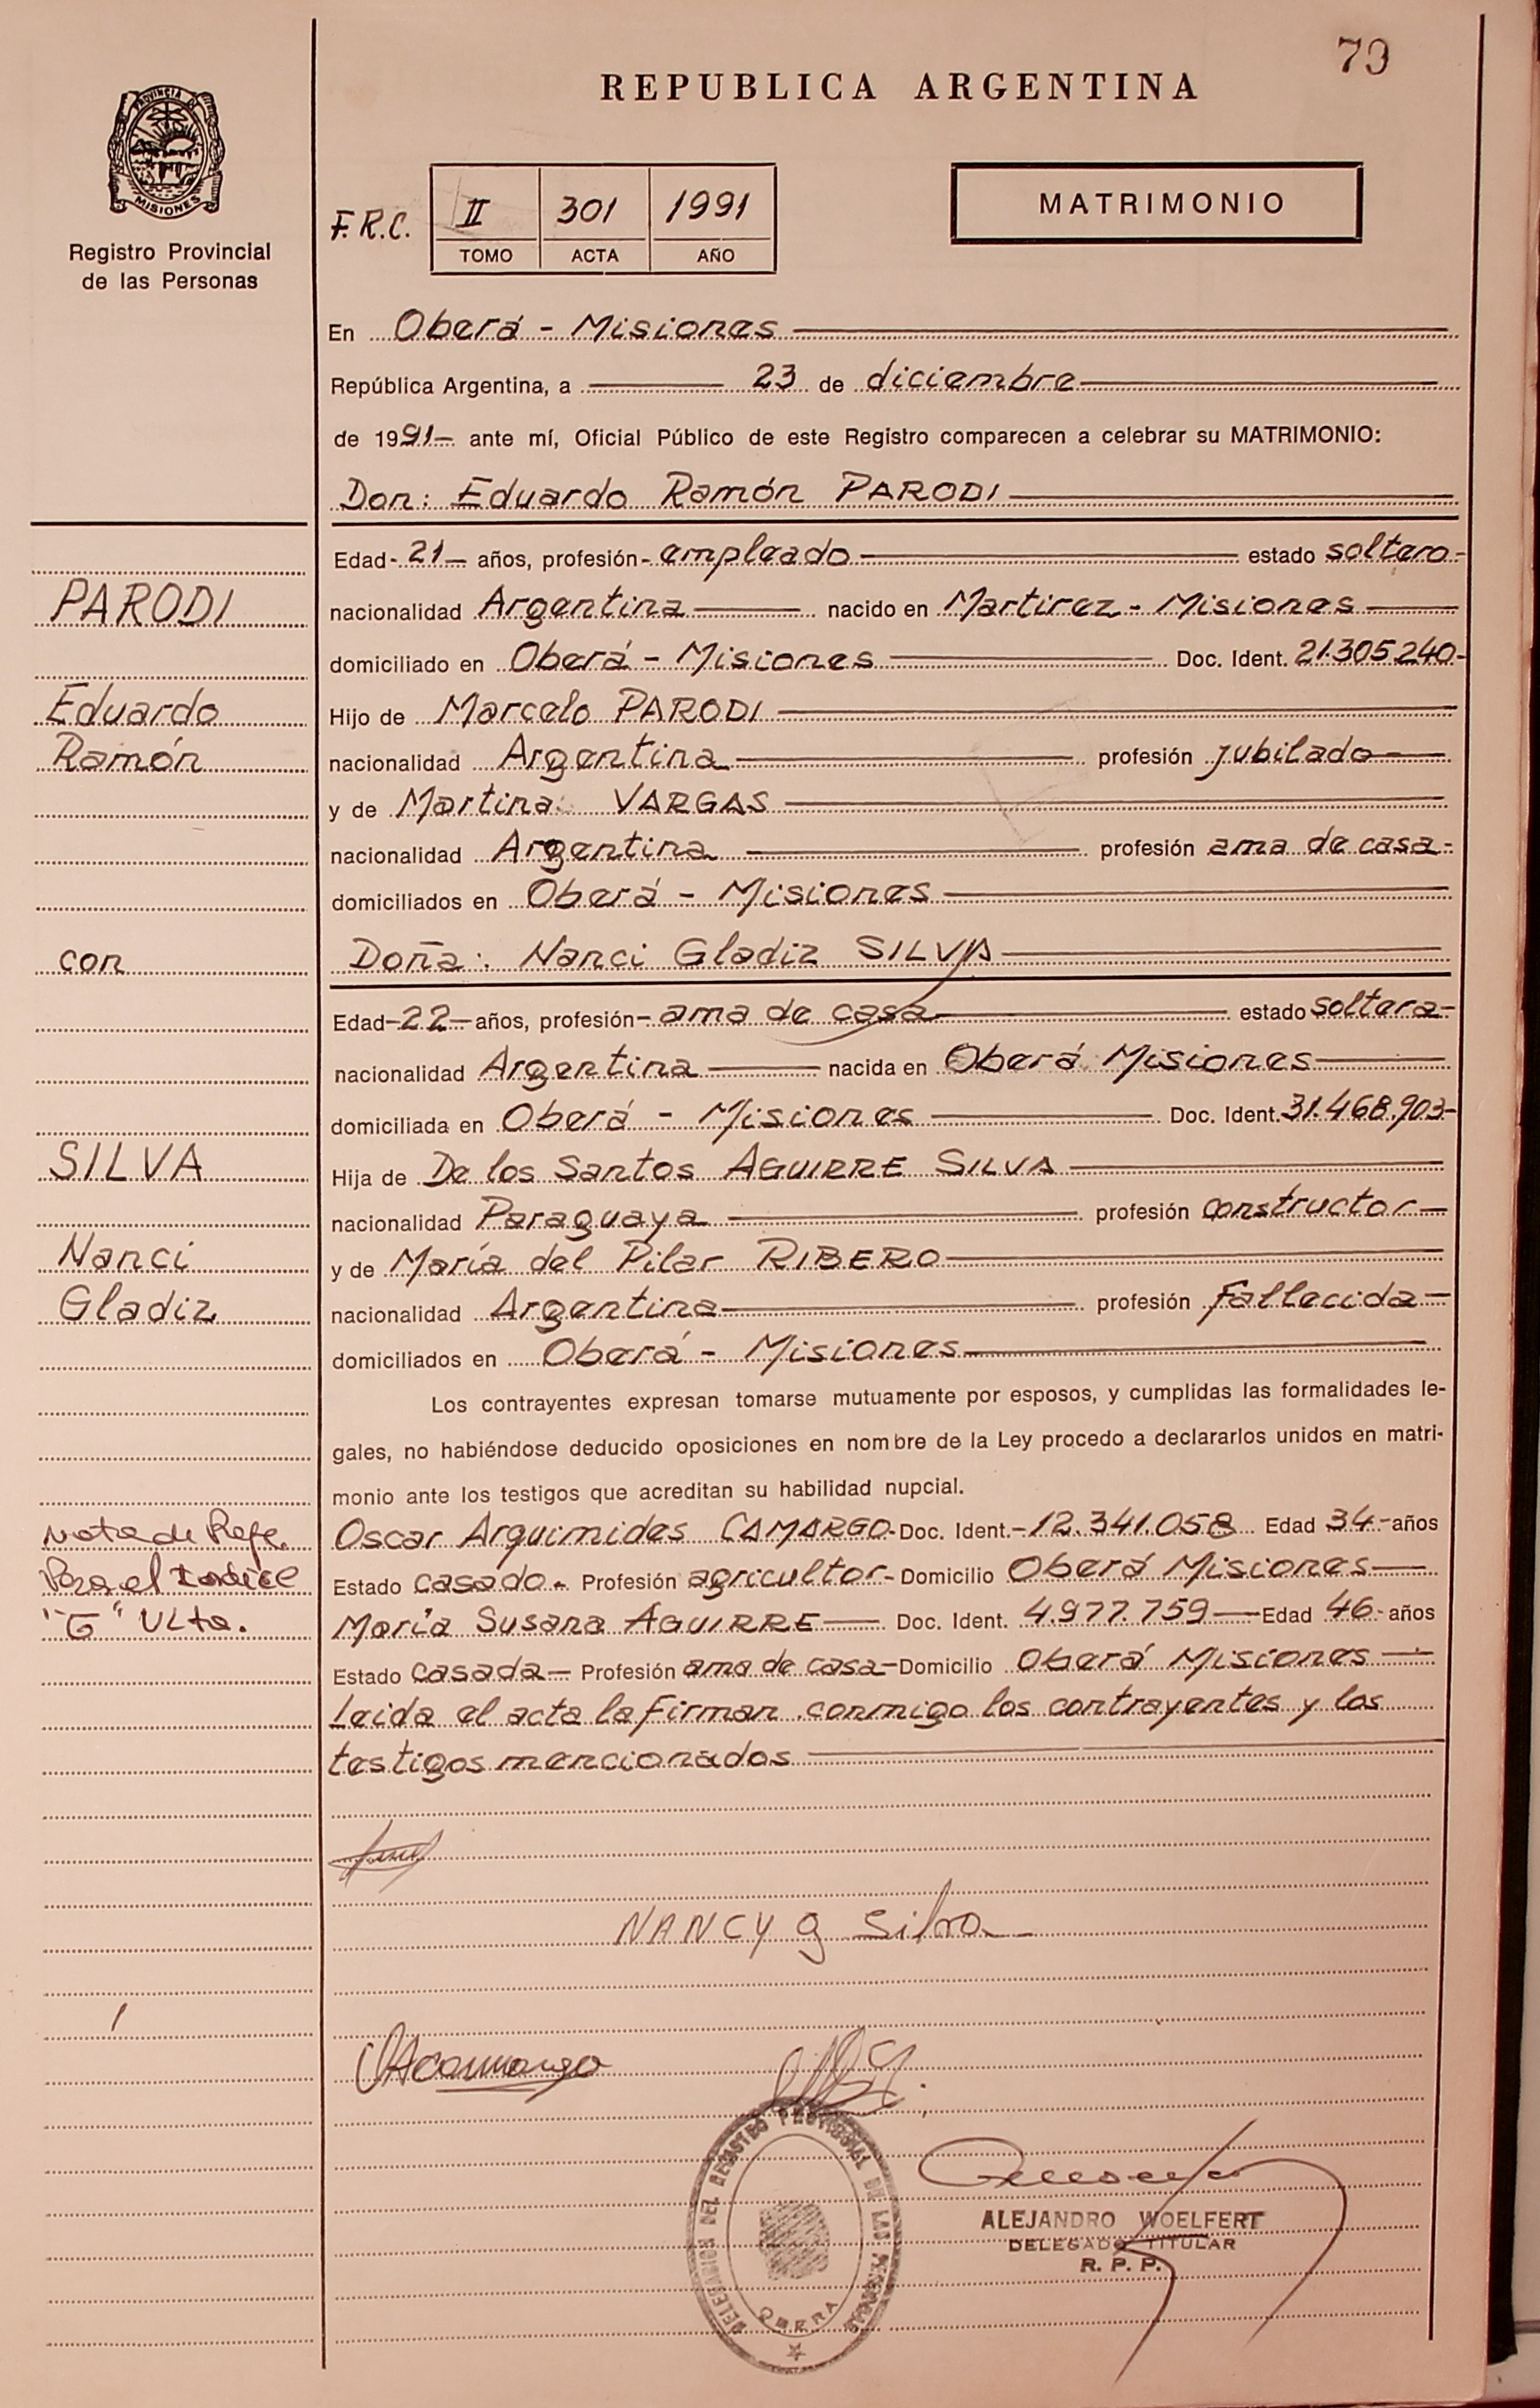 79
REPUBLICA ARGENTINA
PROVINCIA DE
MISIONES
Registro Provincial
de las Personas
F.R.C.
II 301 1991
TOMO ACTA AÑO
MATRIMONIO
En Oberá - Misiones
República Argentina, a 23 de diciembre
de 1991 ante mí, Oficial Público de este Registro comparecen a celebrar su MATRIMONIO:
Don: Eduardo Ramón PARODI
Edad 21 años, profesión empleado estado soltero
nacionalidad Argentina nacido en Martirez - Misiones
domiciliado en Oberá - Misiones Doc. Ident. 21.305.240
Hijo de Marcelo PARODI
nacionalidad Argentina profesión jubilado
y de Martina VARGAS
nacionalidad Argentina profesión ama de casa
domiciliados en Oberá - Misiones
Doña: Nanci Gladiz SILVA
Edad 22 años, profesión ama de casa estado soltera
nacionalidad Argentina nacida en Oberá Misiones
domiciliada en Oberá - Misiones Doc. Ident. 31.468.903
Hija de De los Santos AGUIRRE SILVA
nacionalidad Paraguaya profesión constructor
y de María del Pilar RIBERO
nacionalidad Argentina profesión Fallecida
domiciliados en Oberá - Misiones
Los contrayentes expresan tomarse mutuamente por esposos, y cumplidas las formalidades le-
gales, no habiéndose deducido oposiciones en nombre de la Ley procedo a declararlos unidos en matri-
monio ante los testigos que acreditan su habilidad nupcial.
Oscar Arquimides CAMARGO Doc. Ident. 12.341.058 Edad 34 años
Estado casado Profesión agricultor Domicilio Oberá Misiones
María Susana AGUIRRE Doc. Ident. 4.977.759 Edad 46 años
Estado casada Profesión ama de casa Domicilio Oberá Misiones
Leida el acta la firman conmigo los contrayentes y los
testigos mencionados
PARODI
Eduardo
Ramón
con
SILVA
Nanci
Gladiz
Nota de Refe.
Para el Indice
"G" Ulta.
NANCY g Silva
OACamargo
DELEGACION DEL REGISTRO PROVINCIAL DE LAS PERSONAS
OBERA
ALEJANDRO WOELFERT
DELEGADO TITULAR
R. P. P.